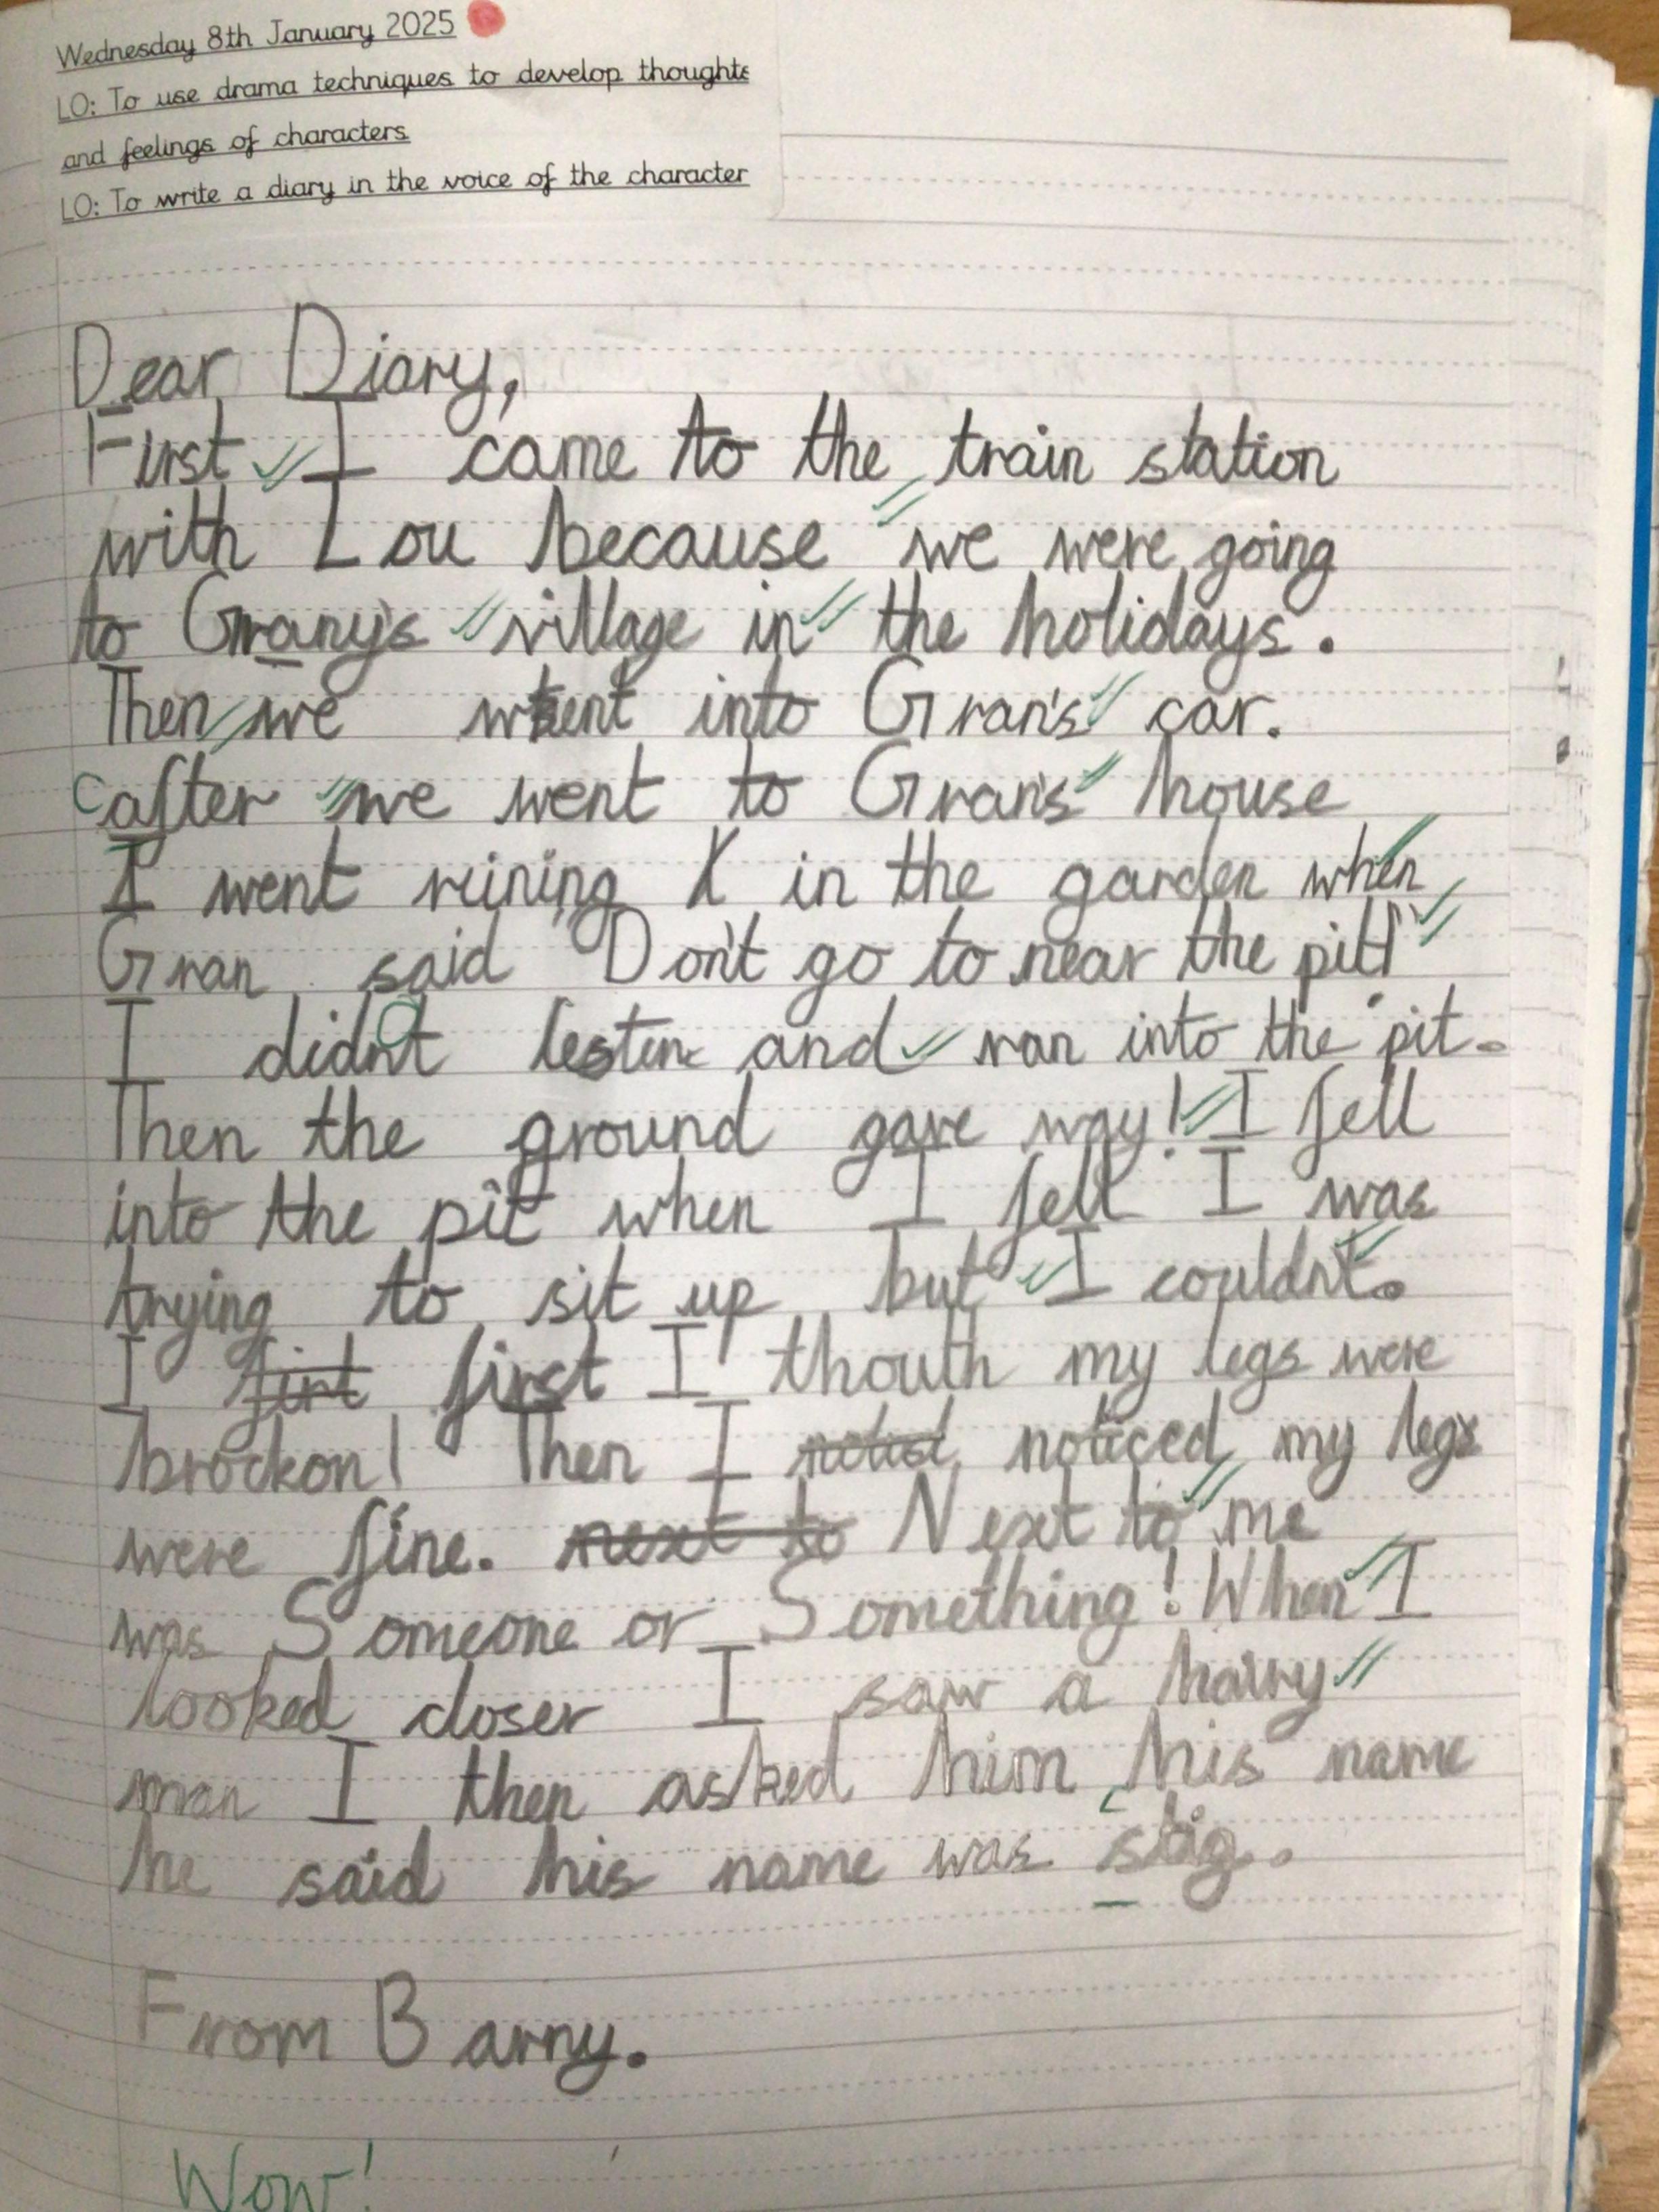 Wednesday 8th January 2025
LO: To use drama techniques to develop thoughts
and feelings of characters
LO: To write a diary in the voice of the character
Dear Diary,
First I came to the train station
with Lou because we were going
to Grany's village in the holidays.
Then we went into Gran's car.
after we went to Gran's house
I went runing in the garden when
Gran said "Don't go to near the pit!"
I didn't lesten and ran into the pit.
Then the ground gave way! I fell
into the pit when I fell I was
trying to sit up but I couldn't.
I first I thouth my legs were
brockon! Then I noticed my legs
were fine. Next to me
was Someone or Something! When I
looked closer I saw a hairy
man I then asked him his name
he said his name was stig.
From Barny.
Wow!